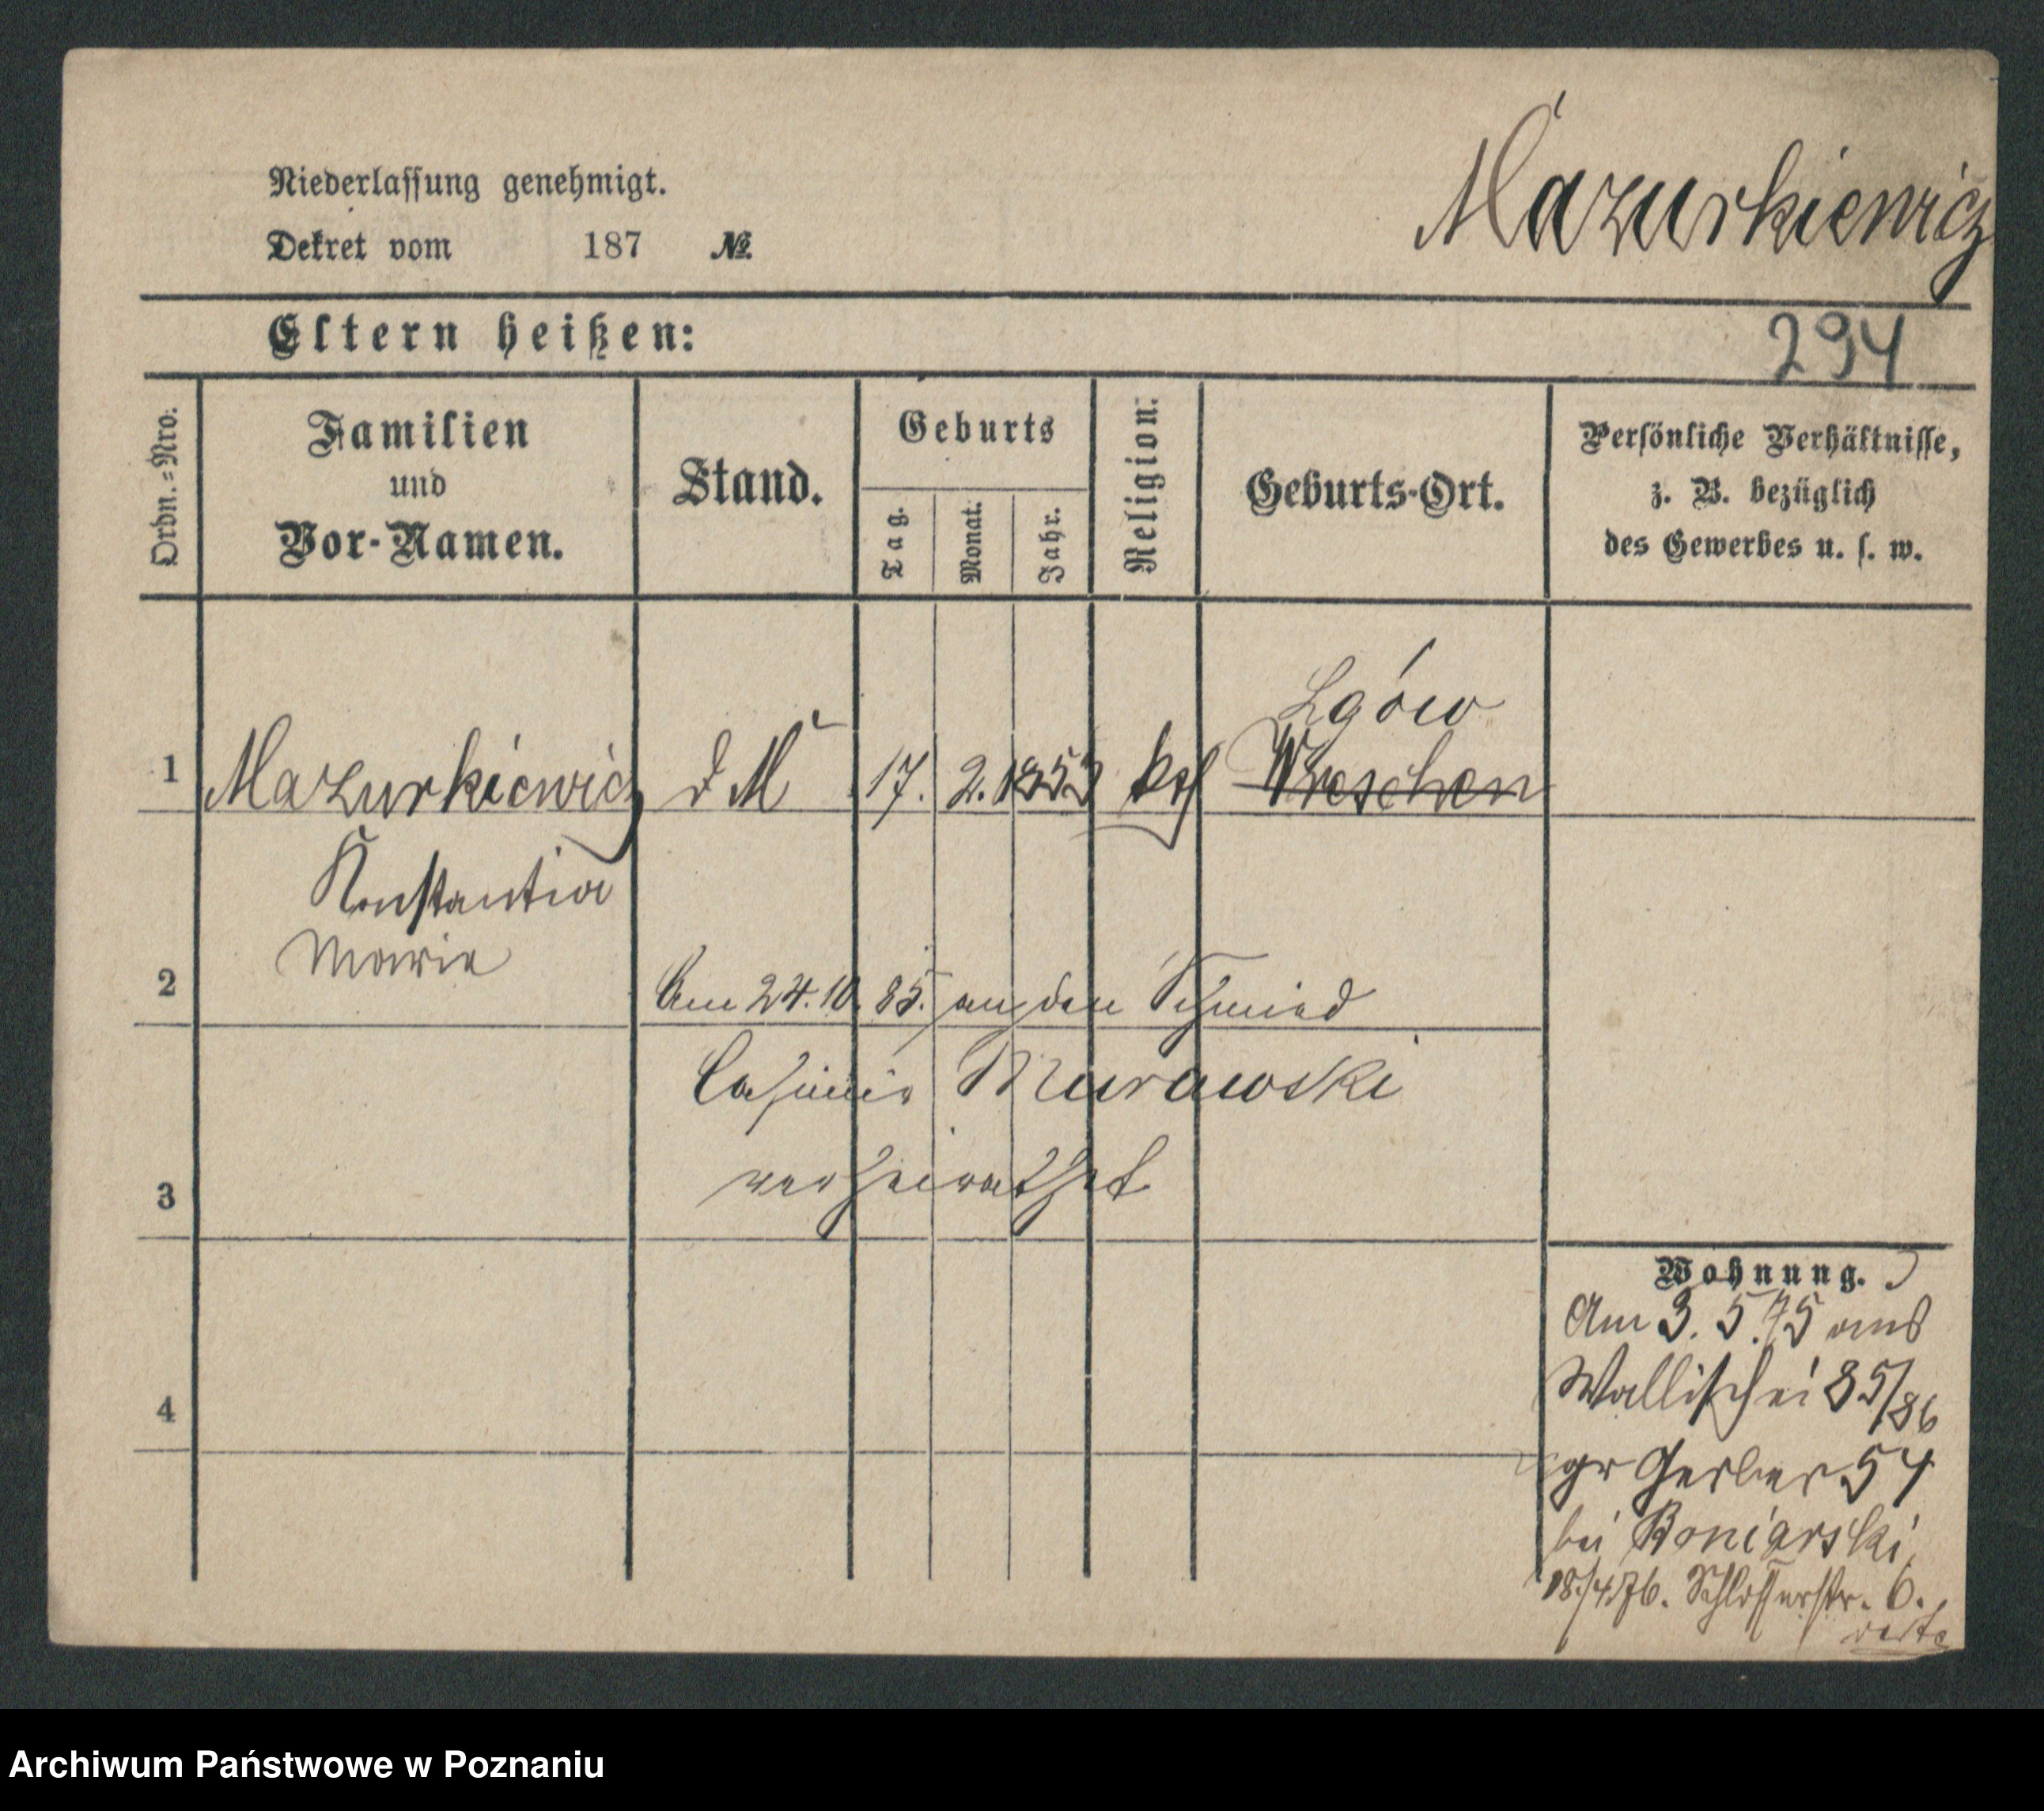 Mazurkiewicz
Niederlassung genehmigt.
Dekret vom 187 №
Eltern heißen:
294
Ordn.=Nro.
Familien
und
Vor-Namen.
Stand.
Geburts
Tag.
Monat.
Jahr.
Religion.
Geburts-Ort.
Persönliche Verhältnisse,
z. B. bezüglich
des Gewerbes u. s. w.
Lgów
1 Mazurkiewicz d M 17. 2. 1853 kath Wreschen
Konstantia
Marie
2 Am 24.10.85. an den Schmied
Casimir Murawski
verheirathet
3
4
Wohnung.
Am 3.5.75 aus
Wallischei 85/86
gr Gerber 54
bei Boniarski,
18/4.76. Schlosserstr. 6.